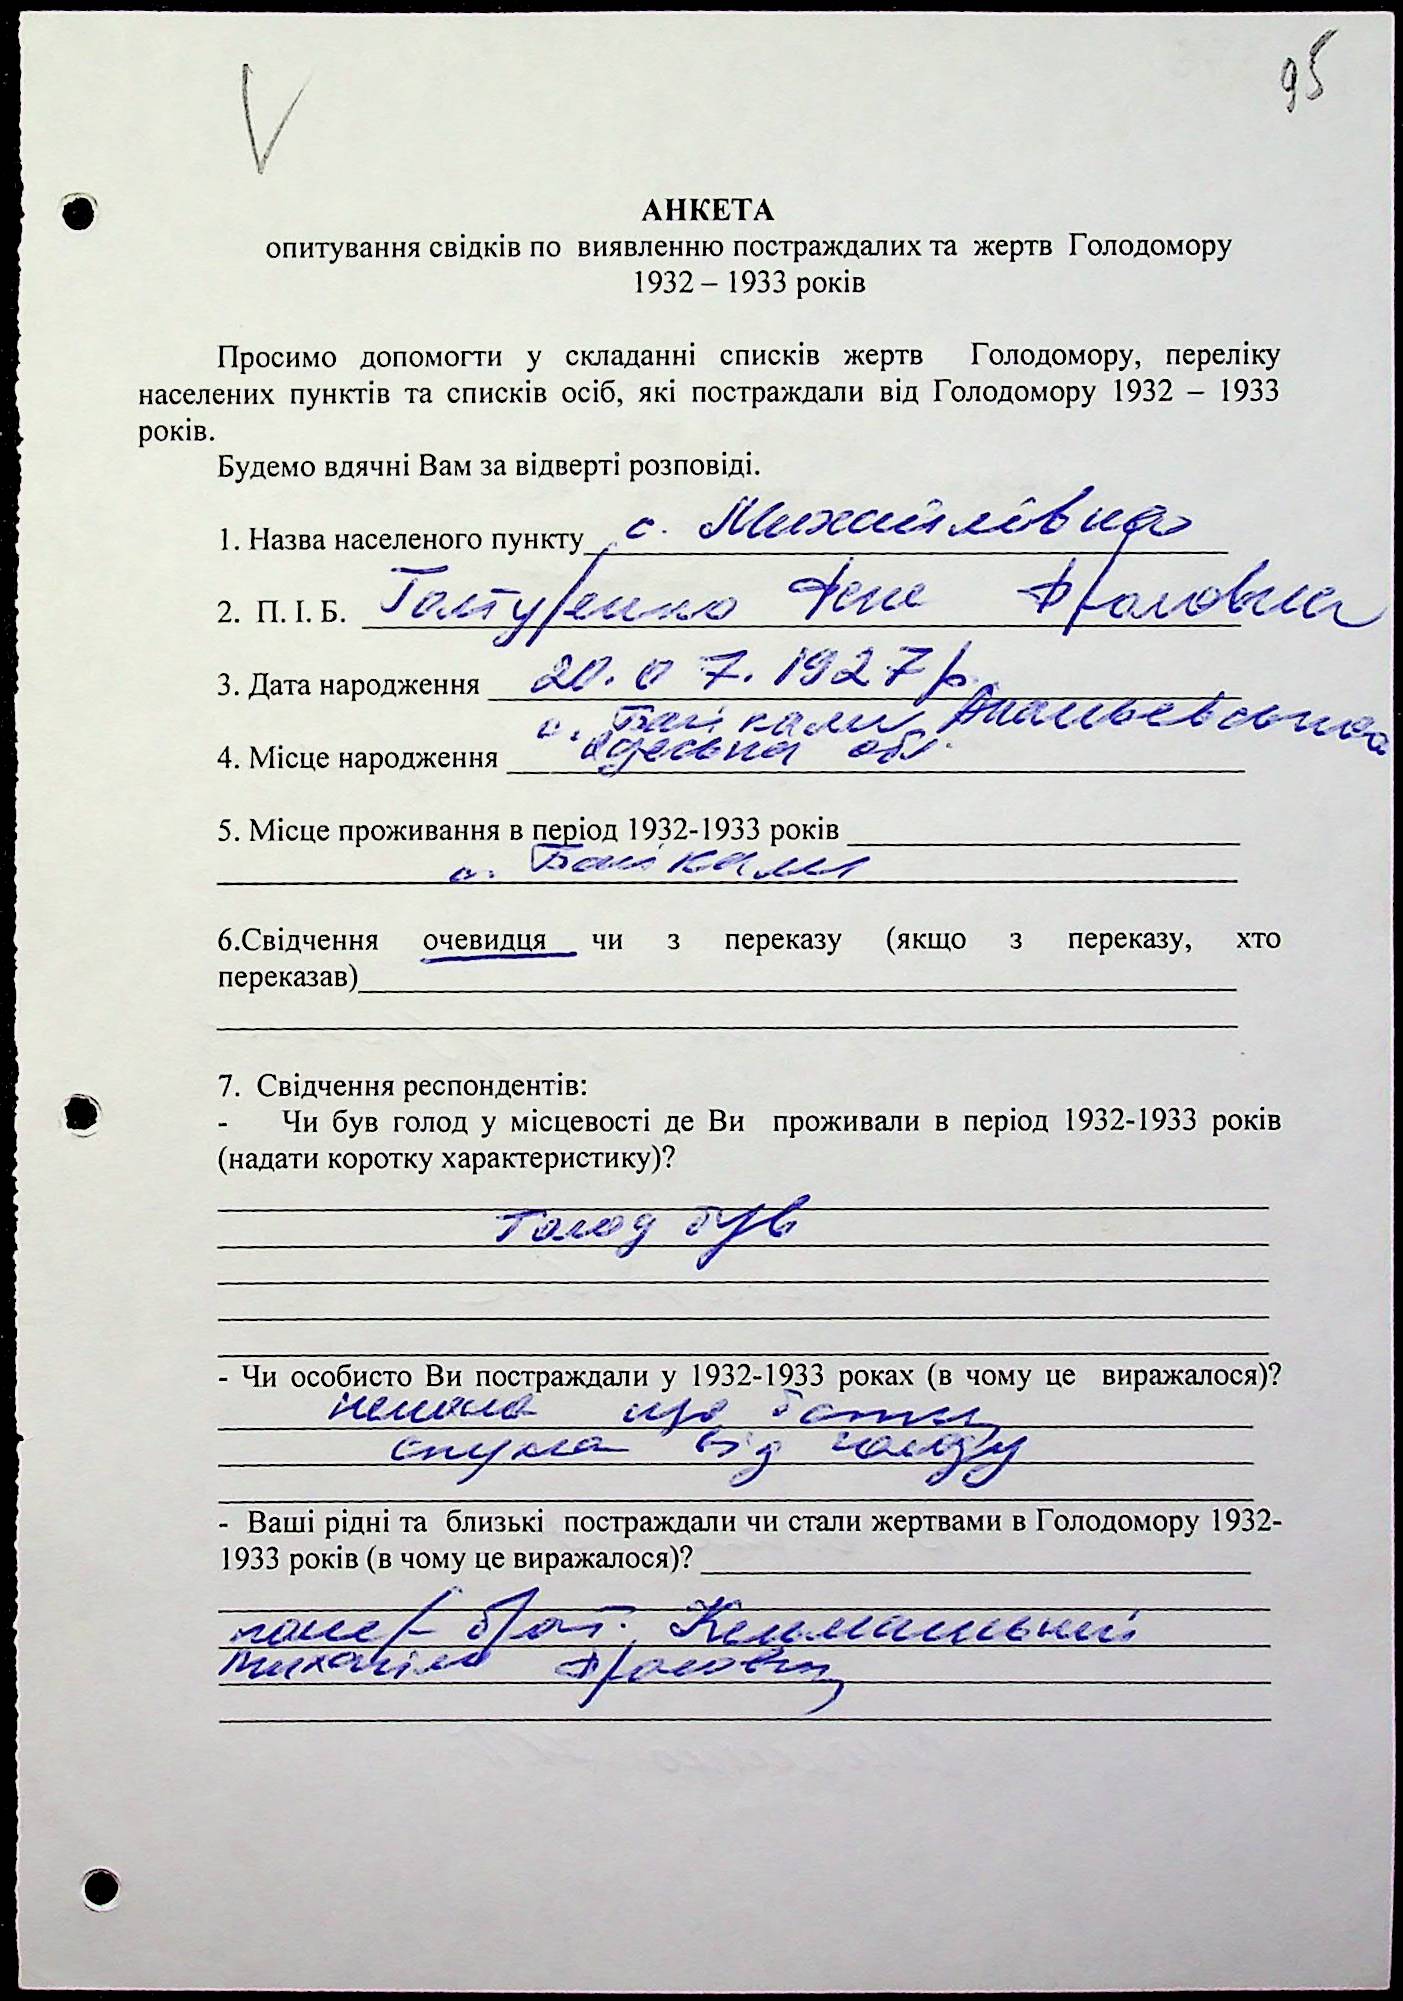 V
95
АНКЕТА
опитування свідків по виявленню постраждалих та жертв Голодомору
1932 – 1933 років
Просимо допомогти у складанні списків жертв Голодомору, переліку
населених пунктів та списків осіб, які постраждали від Голодомору 1932 – 1933
років.
Будемо вдячні Вам за відверті розповіді.
1. Назва населеного пункту с. Михайлівка
2. П. І. Б. Фроловна
3. Дата народження 20.07.1927 р.
с. Байкали
4. Місце народження Одеська обл.
5. Місце проживання в період 1932-1933 років
с. Байкали
6.Свідчення очевидця чи з переказу (якщо з переказу, хто
переказав)
7. Свідчення респондентів:
- Чи був голод у місцевості де Ви проживали в період 1932-1933 років
(надати коротку характеристику)?
Голод був
- Чи особисто Ви постраждали у 1932-1933 роках (в чому це виражалося)?
що
опухла від голоду
- Ваші рідні та близькі постраждали чи стали жертвами в Голодомору 1932-
1933 років (в чому це виражалося)?
помер брат
Михайло Фролович